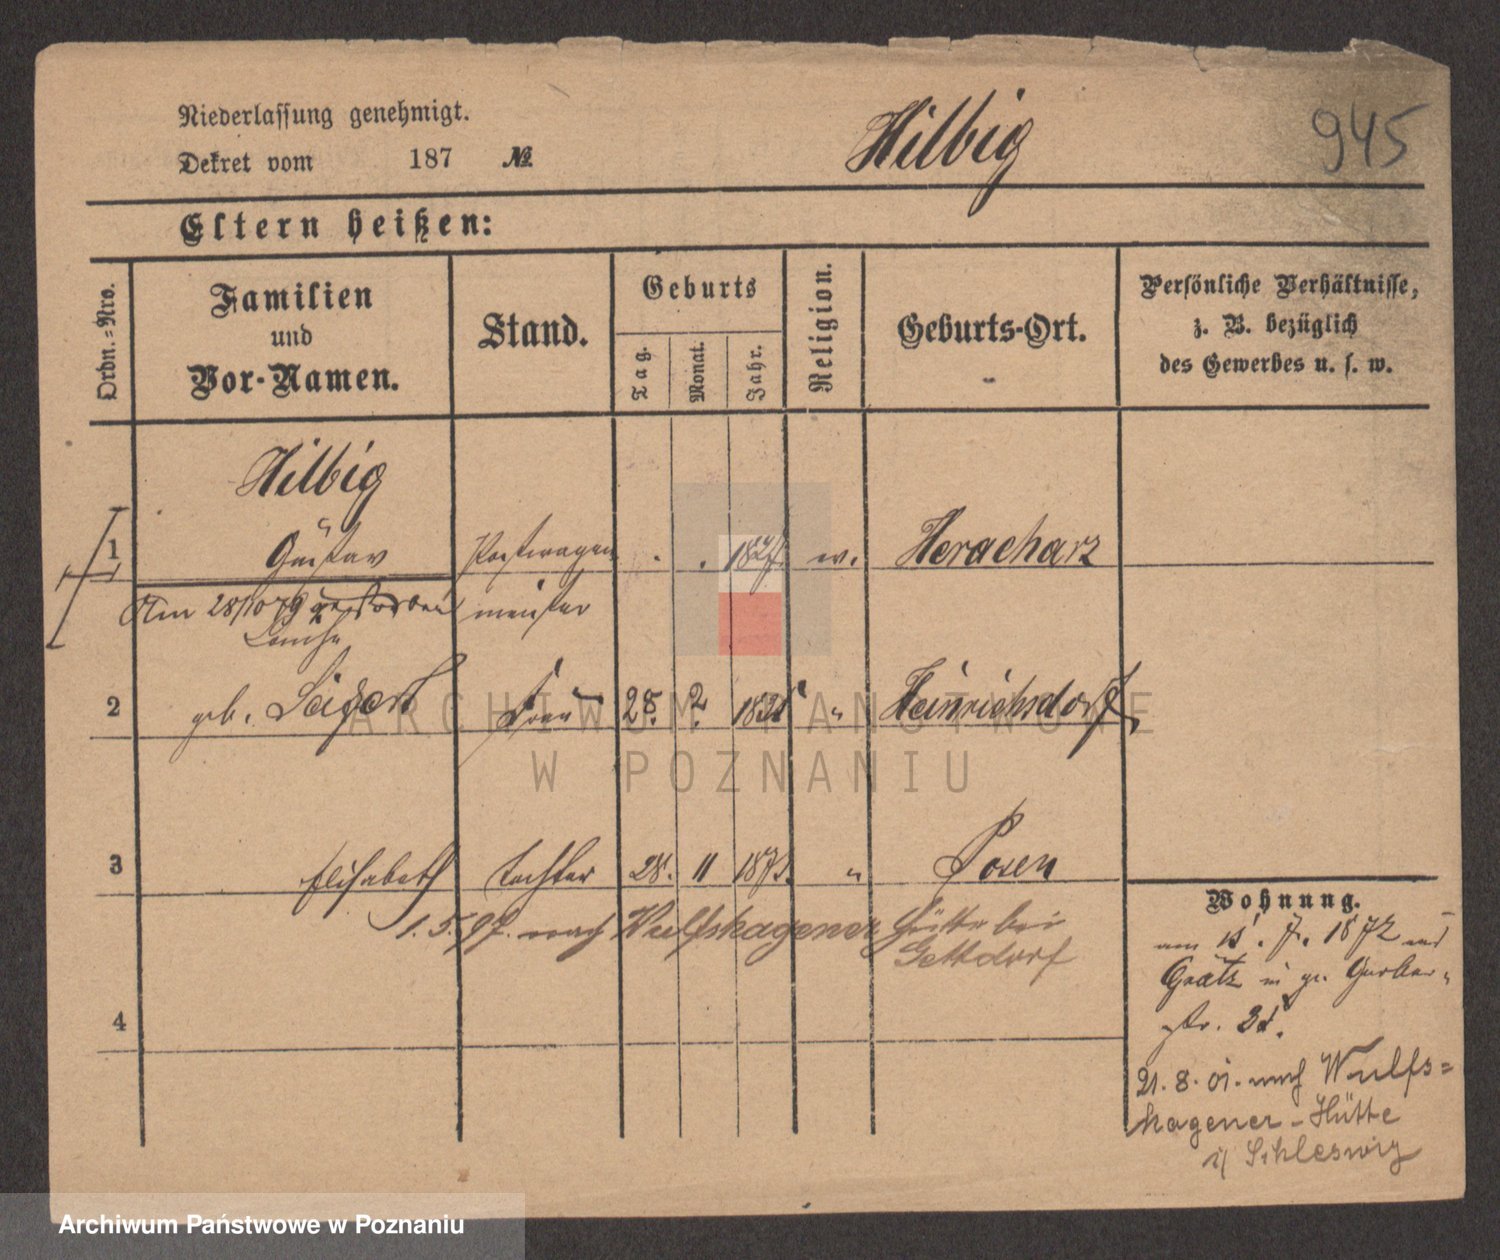 Niederlassung genehmigt.
Dekret vom 187 №
Hilbig
945
Eltern heißen:
Ordn.=Nro.
Familien
und
Vor-Namen.
Stand.
Geburts
Tag.
Monat.
Jahr.
Religion.
Geburts-Ort.
Persönliche Verhältnisse,
z. B. bezüglich
des Gewerbes u. s. w.
Hilbig
1 Gustav Postwagen . . w. Heracharz
Am 28/10 79 gestorben meister
2 geb. Frau 28. 2. „ Heinrichsdorf
3 Elisabeth Tochter 28. 11 „ Posen
1. 5. 97. nach Wulfshagener Hütte bei
Gettdorf
4
Wohnung.
am 15. 7. 1872 aus
Graetz in gr. Gerber-
str.
21. 8. 01. nach Wulfs=
hagener-Hütte
i/ Schleswig
ARCHIWUM PAŃSTWOWE
W POZNANIU
Archiwum Państwowe w Poznaniu